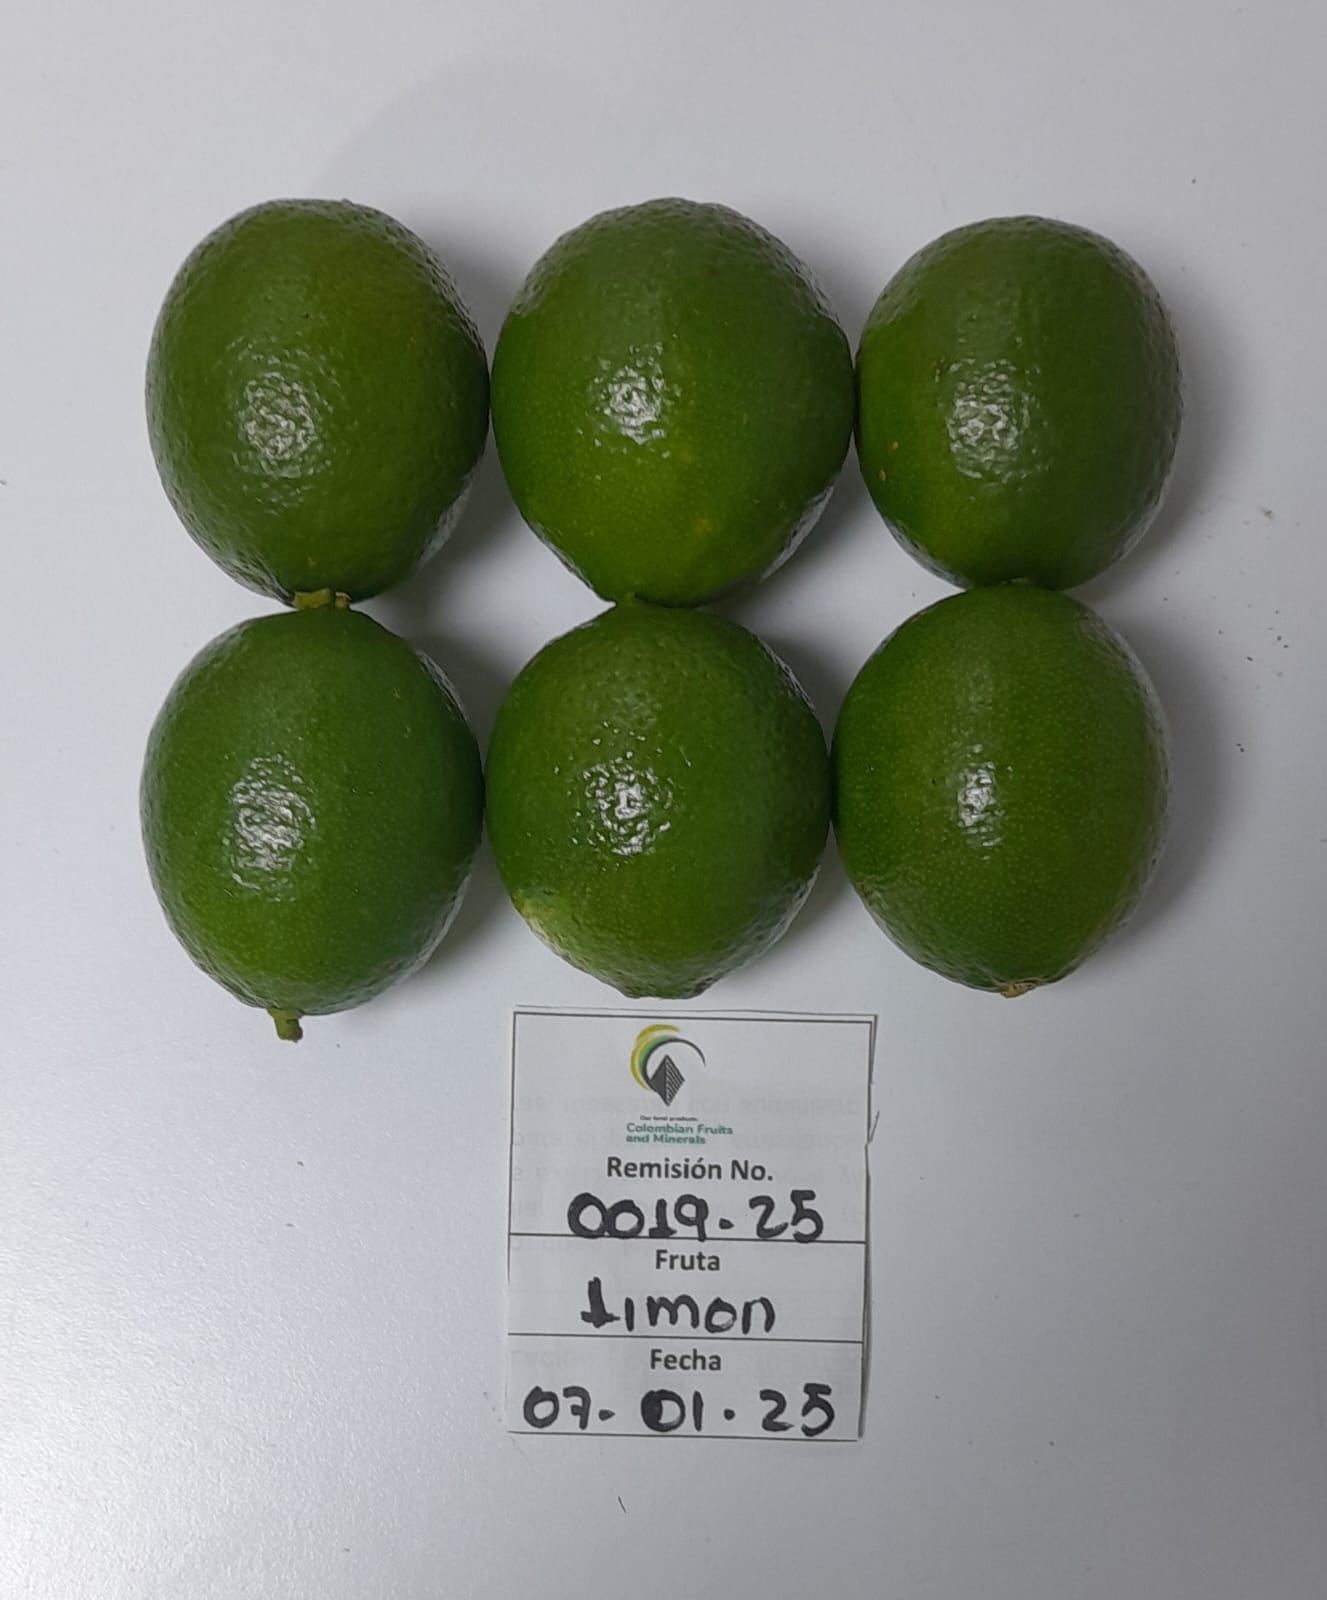 Our land products
Colombian Fruits
and Minerals
Remisión No.
0019-25
Fruta
Limon
Fecha
07-01-25